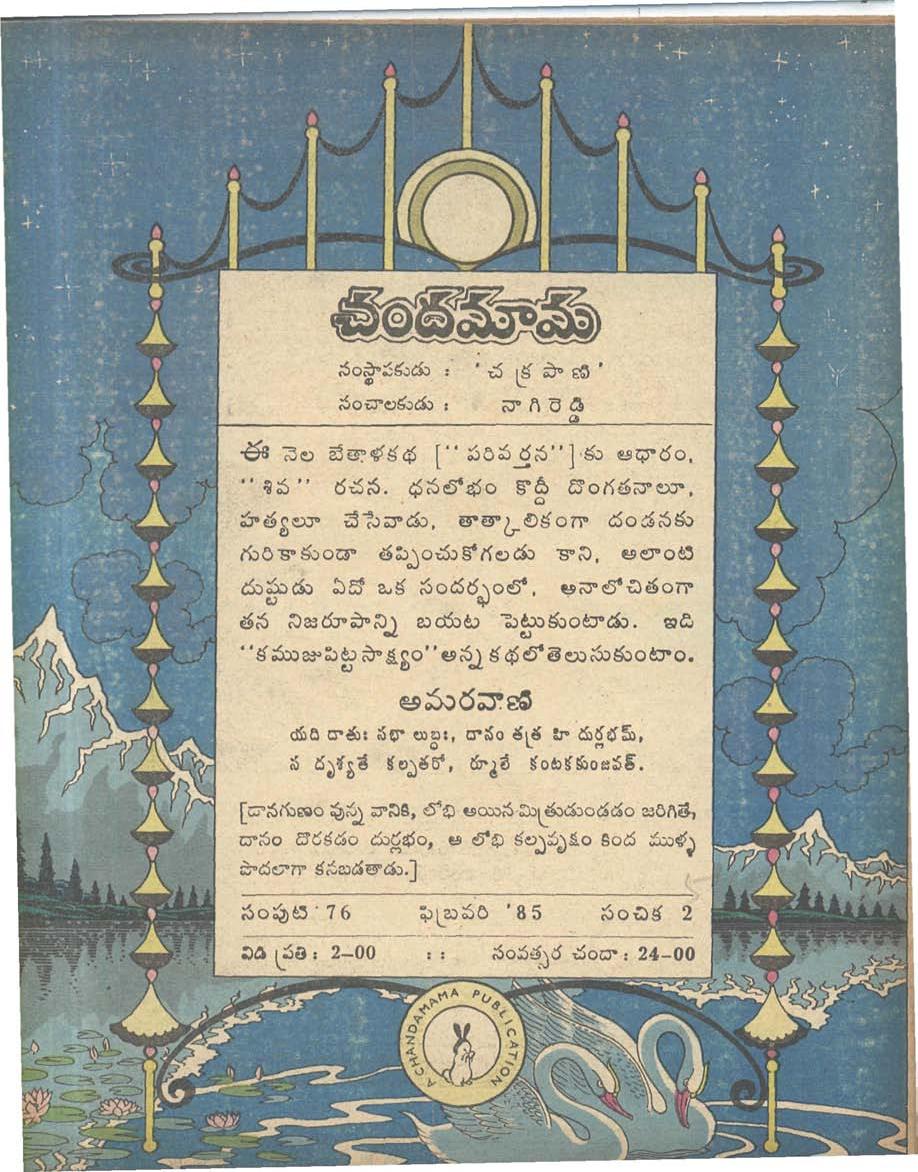 చందమామ
సంస్థాపకుడు : 'చక్రపాణి'
సంచాలకుడు : నాగిరెడ్డి
ఈ నెల బేతాళకథ ["పరివర్తన"] కు ఆధారం,
"శివ" రచన. ధనలోభం కొద్దీ దొంగతనాలూ,
హత్యలూ చేసేవాడు, తాత్కాలికంగా దండనకు
గురికాకుండా తప్పించుకోగలడు కాని, అలాంటి
దుష్టుడు ఏదో ఒక సందర్భంలో, అనాలోచితంగా
తన నిజరూపాన్ని బయట పెట్టుకుంటాడు. ఇది
"కముజుపిట్ట సాక్ష్యం" అన్న కథలో తెలుసుకుంటాం.
అమరవాణి
యది దాతుః సభా లుబ్ధః, దానం తత్ర హి దుర్లభమ్,
న దృశ్యతే కల్పతరో, ర్మూలే కంటకకుంజవత్.
[దానగుణం వున్న వానికి, లోభి అయిన మిత్రుడుండడం జరిగితే,
దానం దొరకడం దుర్లభం, ఆ లోభి కల్పవృక్షం కింద ముళ్ళ
పొదలాగా కనబడతాడు.]
సంపుటి 76 ఫిబ్రవరి '85 సంచిక 2
విడి ప్రతి : 2-00 : : సంవత్సర చందా : 24-00
A CHANDAMAMA PUBLICATION